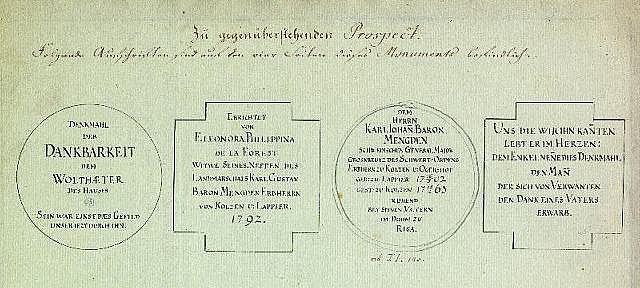 Zu gegenüberstehenden Prospect.
Folgende Aufschriften sind auf den vier Seiten dieses Monuments befindlich.
DENKMAHL
DER
DANKBARKEIT
DEM
WOLTHÆTER
DES HAUSES
SEIN WAR EINST DÆS GEFILD
UNSER IEZT DURCH IHN.
ERRICHTET
VON
ELEONORA PHILIPPINA
DE LA FOREST
WITWE SEINES NEFFEN DES
LANDMARSCHALS KARL GUSTAV
BARON MENGDEN ERBHERRN
VON KOLZEN U: LAPPIER.
1792.
DEM
HERRN
KARL JOHAN BARON
MENGDEN
GENERAL MAJOR
GROSKREUZ DES SCHWERT-ORDENS
ERBHERR ZU KOLZEN U:
GEB: ZU LAPPIER
GEST: ZU KOLZEN
RUHEND
BEY SEINEN VÆTERN
IM DOHM ZU
RIGA.
UNS DIE WIR IHN KANTEN
LEBT ER IM HERZEN:
DEM ENKEL NENE DIES DENKMAHL
DEN MAÑ
DER SICH VON VERWANTEN
DEN DANK EINES VATERS
ERWARB.